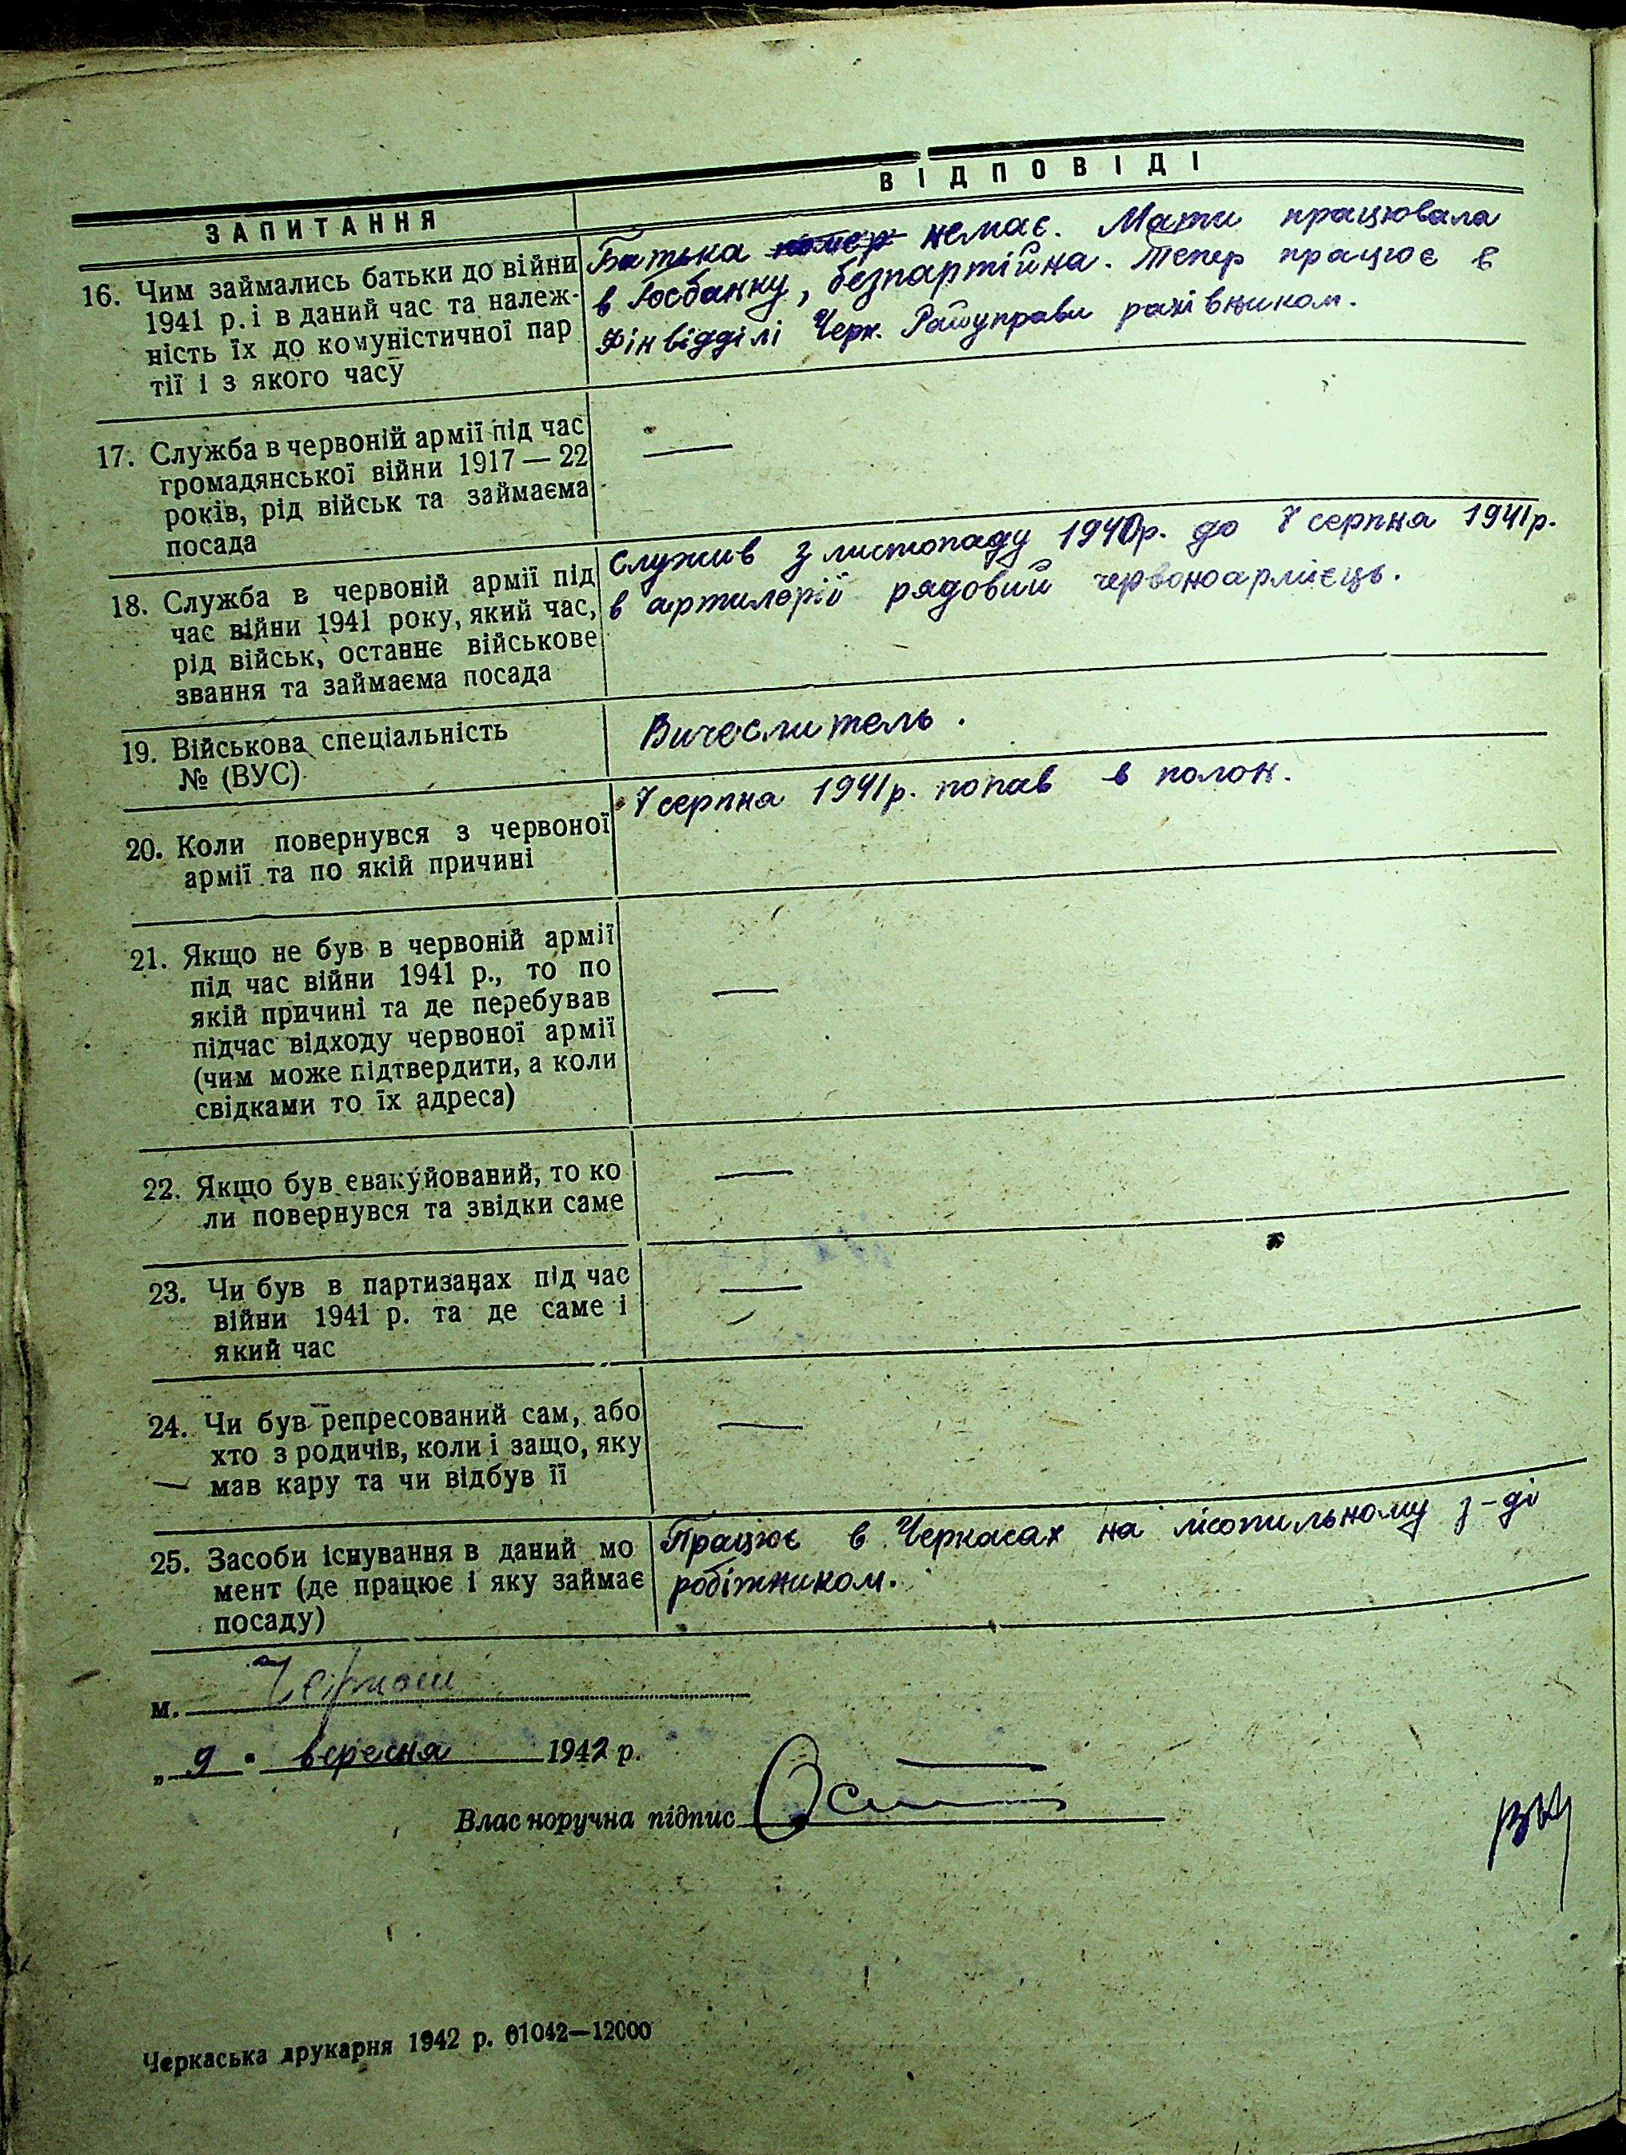 ЗАПИТАННЯ
ВІДПОВІДІ
16. Чим займались батьки до війни
1941 р. і в даний час та належ-
ність їх до комуністичної пар
тії і з якого часу
Батька помер немає. Мати працювала
в Госбанку, безпартійна. Тепер працює в
Фінвідділі Черк. Райуправи рахівником.
17. Служба в червоній армії під час
громадянської війни 1917 — 22
років, рід військ та займаєма
посада
—
18. Служба в червоній армії під
час війни 1941 року, який час,
рід військ, останнє військове
звання та займаєма посада
Служив з листопаду 1940р. до 7 серпня 1941р.
в артилерії рядовий червоноармієць.
19. Військова спеціальність
№ (ВУС)
Вичеслитель.
20. Коли повернувся з червоної
армії та по якій причині
7 серпня 1941р. попав в полон.
21. Якщо не був в червоній армії
під час війни 1941 р., то по
якій причині та де перебував
підчас відходу червоної армії
(чим може підтвердити, а коли
свідками то їх адреса)
—
22. Якщо був евакуйований, то ко
ли повернувся та звідки саме
—
23. Чи був в партизанах під час
війни 1941 р. та де саме і
який час
—
24. Чи був репресований сам, або
хто з родичів, коли і защо, яку
мав кару та чи відбув її
—
25. Засоби існування в даний мо
мент (де працює і яку займає
посаду)
Працює в Черкасах на лісопильному з-ді
робітником.
м. Черкаси
„ 9 " вересня 1942 р.
Власноручна підпис
Черкаська друкарня 1942 р. 01042—12000